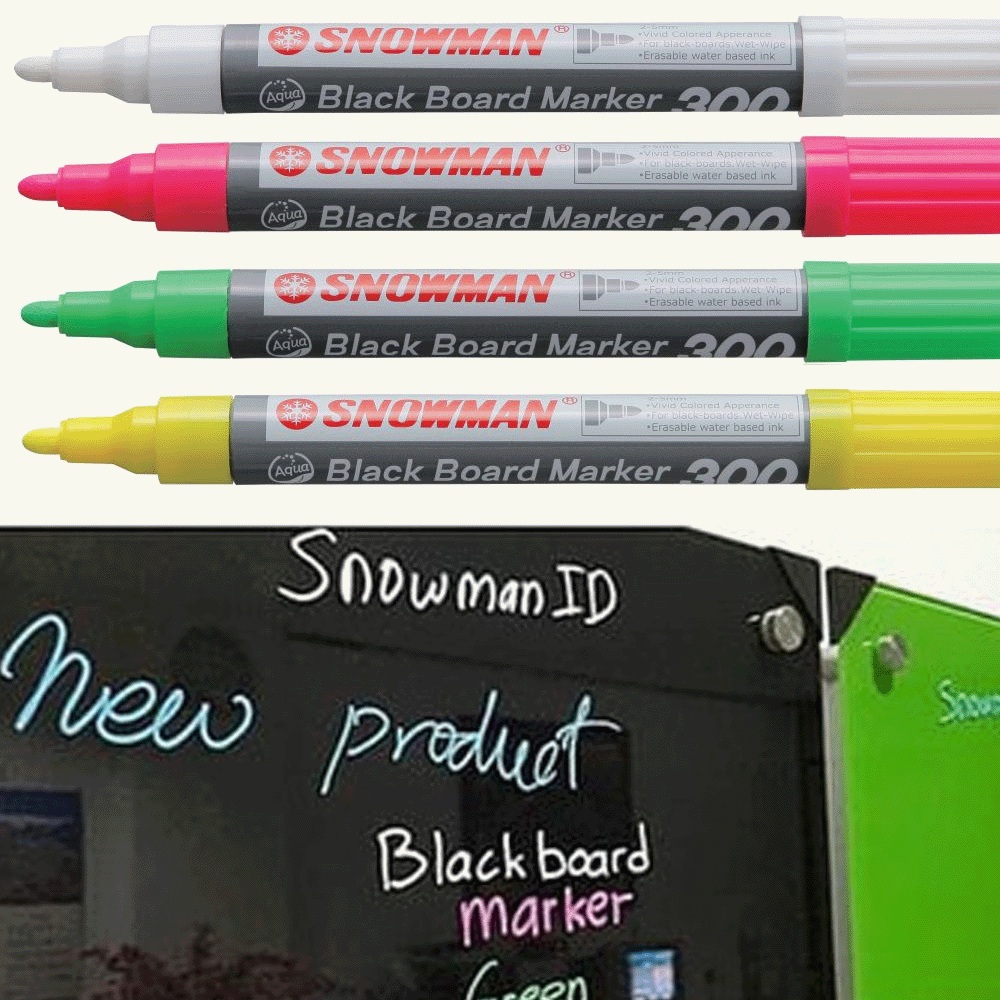 SNOWMAN®
2-5mm
•Vivid Colored Apperance
•For black-boards.Wet-Wipe
•Erasable water based ink
Aqua Black Board Marker 300
SNOWMAN®
2-5mm
•Vivid Colored Apperance
•For black-boards.Wet-Wipe
•Erasable water based ink
Aqua Black Board Marker 300
SNOWMAN®
2-5mm
•Vivid Colored Apperance
•For black-boards.Wet-Wipe
•Erasable water based ink
Aqua Black Board Marker 300
SNOWMAN®
2-5mm
•Vivid Colored Apperance
•For black-boards.Wet-Wipe
•Erasable water based ink
Aqua Black Board Marker 300
Snowman ID
New product
Black board
marker
Green